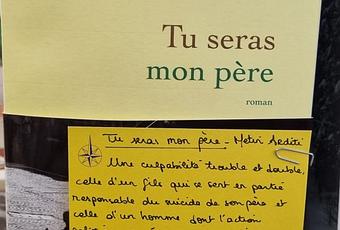 Tu seras
mon père
roman
Tu seras mon père - Metin Arditi
Une culpabilité trouble et double,
celle d'un fils qui se sent en partie
responsable du suicide de son père et
celle d'un homme dont l'action